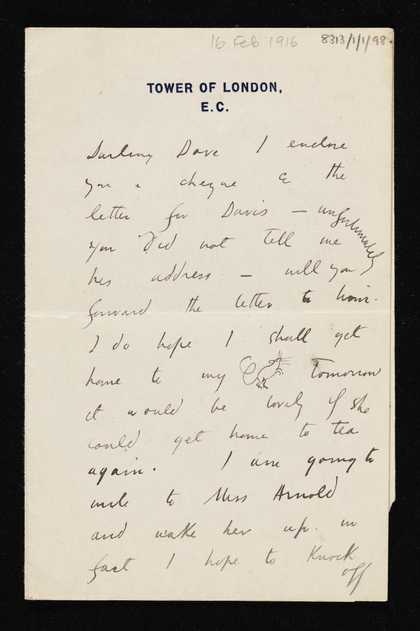 16 Feb 1916
8313/1/1/98.
TOWER OF LONDON,
E.C.
Darling Dove I enclose
you a cheque & the
letter for Davis – unfortunately
you did not tell me
his address – will you
forward the letter to him.
I do hope I shall get
home to my tomorrow
it would be lovely if she
could get home to tea
again. I am going to
write to Miss Arnold
and wake her up. in
fact I hope to Knock
off